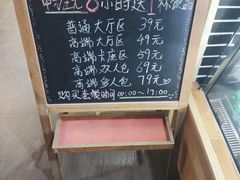 8小时送1杯饮品
普通大厅区 39元
高端大厅区 49元
高端卡座区 59元
高端双人包 69元
高端多人包 79元
购买套餐时间 00:00~17:00